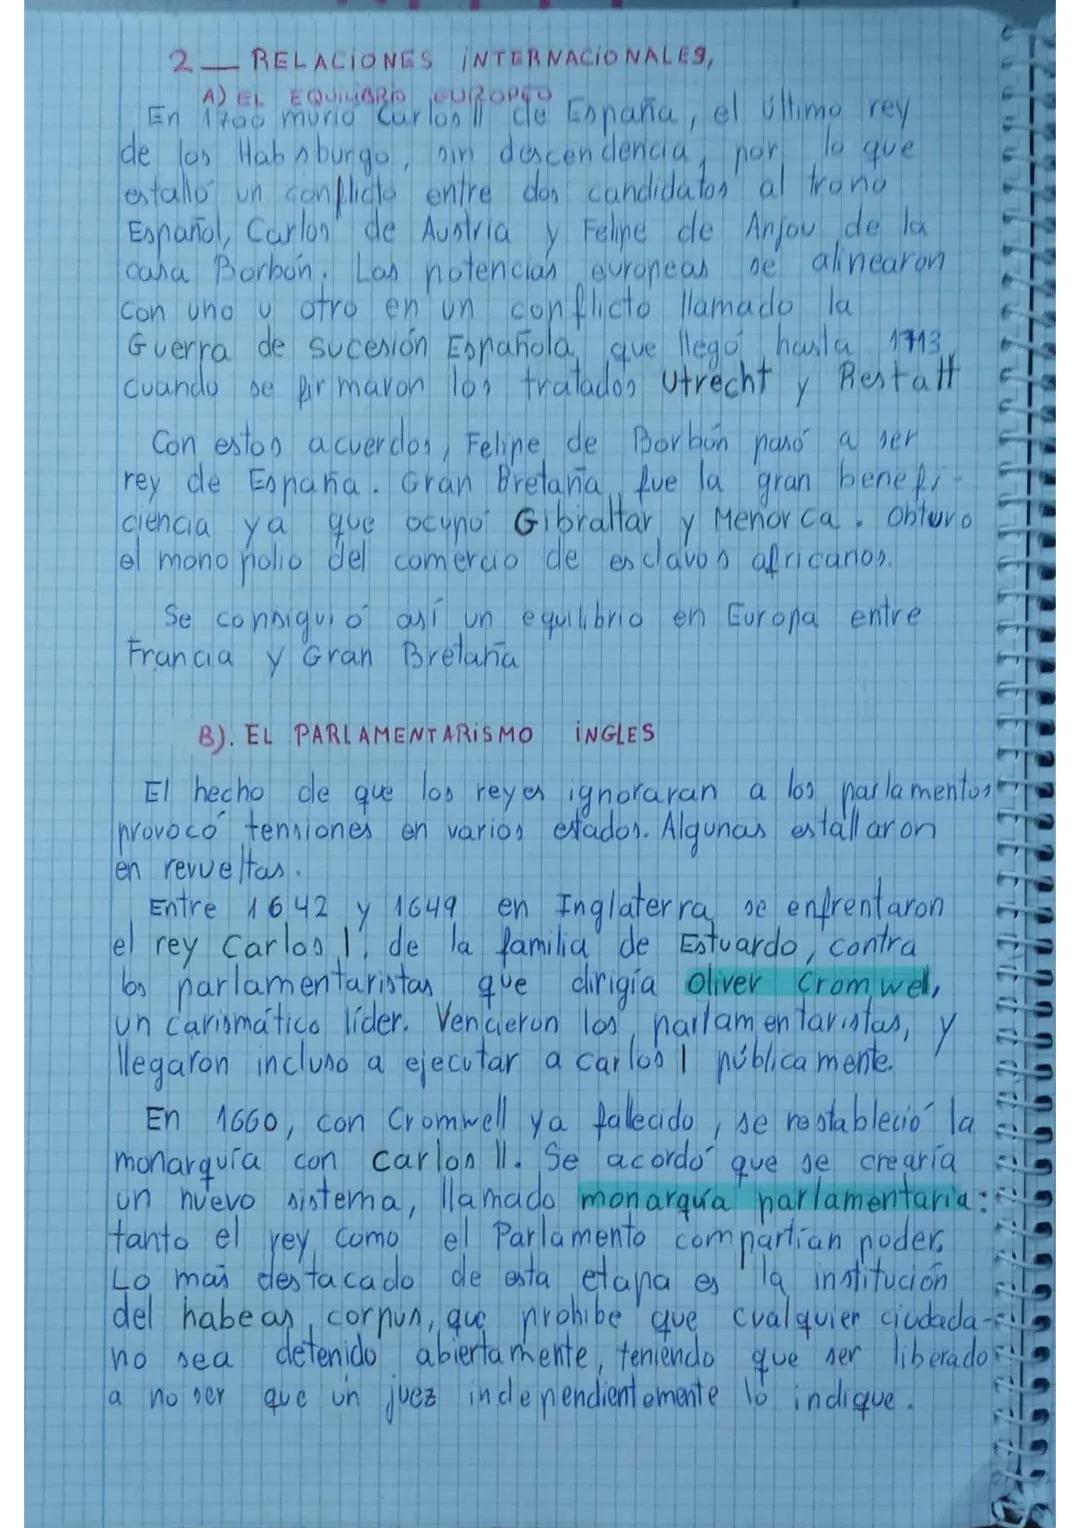 2 — RELACIONES INTERNACIONALES,
A) EL EQUILIBRIO EUROPEO
En 1700 murió Carlos II de España, el último rey
de los Habsburgo, sin descendencia, por lo que
estalló un conflicto entre dos candidatos al trono
Español, Carlos de Austria y Felipe de Anjou de la
casa Borbón. Las potencias europeas se alinearon
con uno u otro en un conflicto llamado la
Guerra de sucesión Española, que llegó hasta 1713
cuando se firmaron los tratados Utrecht y Restatt
Con estos acuerdos, Felipe de Borbón pasó a ser
rey de España. Gran Bretaña fue la gran benefi-
ciencia ya que ocupó Gibraltar y Menorca. Obtuvo
el monopolio del comercio de esclavos africanos.
Se consiguió así un equilibrio en Europa entre
Francia y Gran Bretaña
B). EL PARLAMENTARISMO INGLES
El hecho de que los reyes ignoraran a los parlamentos
provocó tensiones en varios estados. Algunas estallaron
en revueltas.
Entre 1642 y 1649 en Inglaterra se enfrentaron
el rey Carlos I, de la familia de Estuardo, contra
los parlamentaristas que dirigía Oliver Cromwel,
un carismático líder. Vencieron los parlamentaristas, y
llegaron incluso a ejecutar a Carlos I públicamente.
En 1660, con Cromwell ya fallecido, se restableció la
monarquía con Carlos II. Se acordó que se crearía
un nuevo sistema, llamado monarquía parlamentaria:
tanto el rey como el Parlamento compartían poder.
Lo más destacado de esta etapa es la institución
del habeas corpus, que prohibe que cualquier ciudada-
no sea detenido abiertamente, teniendo que ser liberado
a no ser que un juez independientemente lo indique.